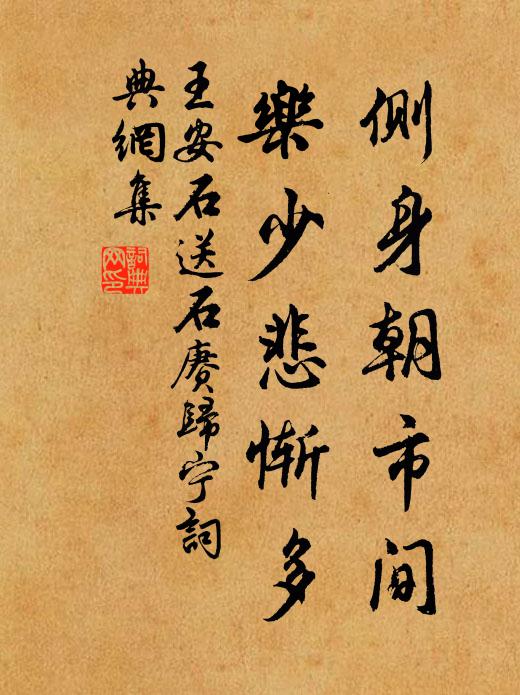 側身朝市間
樂少悲慚多
王安石送石賡歸宁詞
典網集
詞典
网印